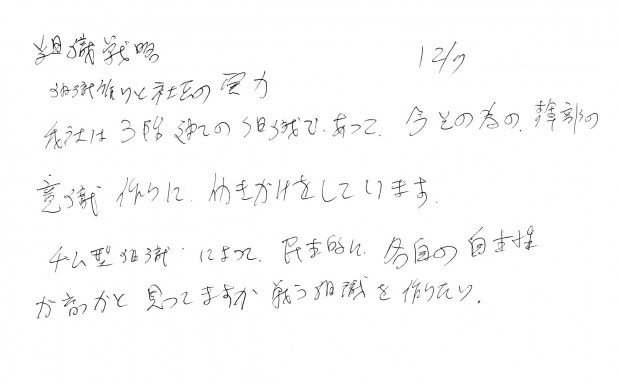 組織戦略
12/7
組織作りと社長の実力
我社は3階建ての組織であって、今その為の、幹部の
意識 作りに、働きかけをしています。
チーム型組織 によって、民主的に、各自の自主性
が と 見ってますが 戦う組織を 作りたい。